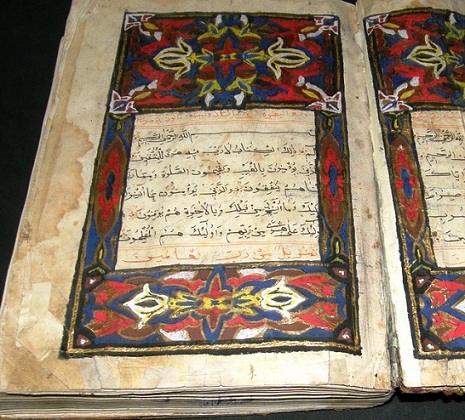 بسم الله الرحمن الرحيم
ذلك الكتاب لا ريب فيه هدى للمتقين
الذين يؤمنون بالغيب ويقيمون الصلوة ومما
رزقناهم ينفقون والذين يؤمنون بما انزل
اليك وما انزل من قبلك وبالاخرة هم يوقنون
اولئك على هدى من ربهم واولئك هم المفلحون
تنزيل من رب العالمين